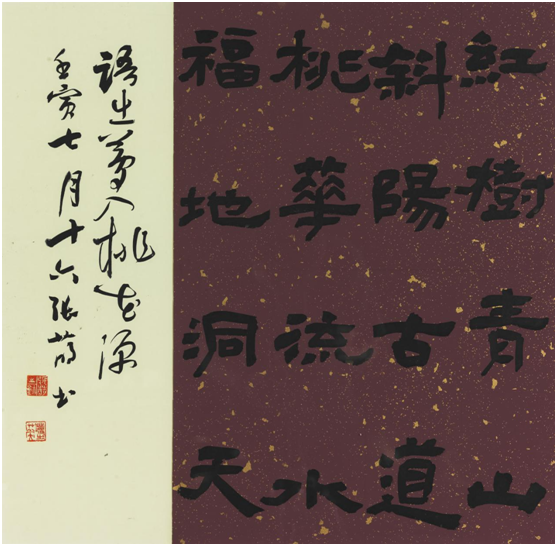 紅樹青山
斜陽古道
桃華流水
福地洞天
語出夢入桃花源
壬寅七月十六張蔚書